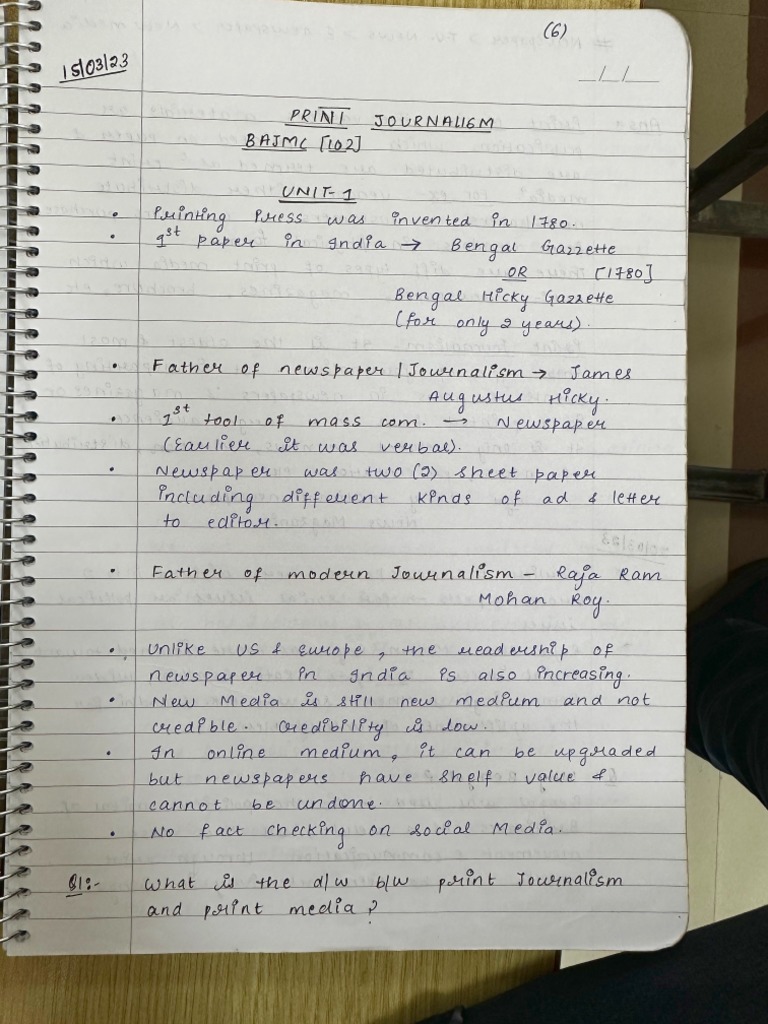 (6)
15/03/23
_/_/_
PRINT JOURNALISM
BAJMC [102]
UNIT-1
• Printing Press was invented in 1780.
• 1st paper in India → Bengal Gazzette
OR [1780]
Bengal Hicky Gazzette
(for only 2 years).
• Father of newspaper / Journalism → James
Augustus Hicky.
• 1st tool of mass com. → Newspaper
(Earlier it was verbal).
• Newspaper was two (2) sheet paper
including different kinds of ad & letter
to editor.
• Father of modern Journalism - Raja Ram
Mohan Roy.
• Unlike US & Europe, the readership of
newspaper in India is also increasing.
• New Media is still new medium and not
credible. Credibility is low.
• In online medium, it can be upgraded
but newspapers have shelf value &
cannot be undone.
• No fact checking on social Media.
Q1:- What is the d/w b/w print Journalism
and print media?